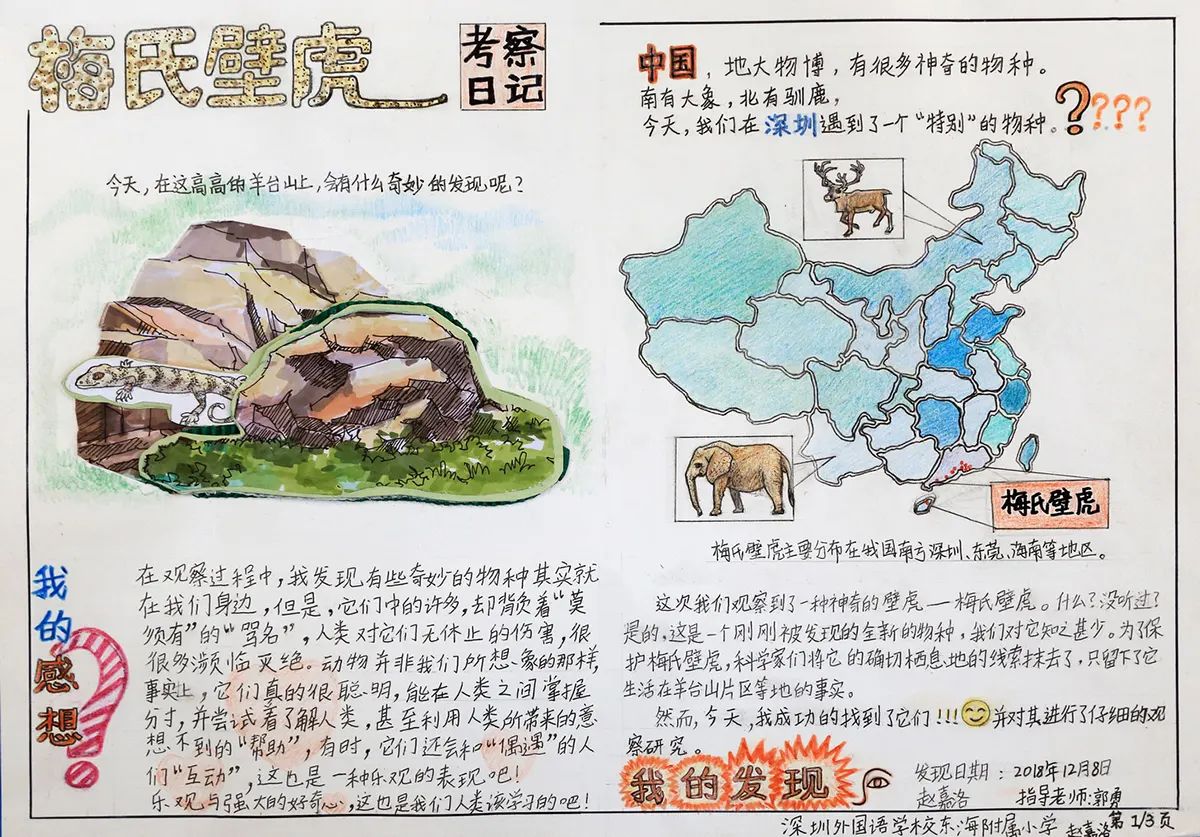 梅氏壁虎
考察
日记
今天，在这高高的羊台山上，会有什么奇妙的发现呢？
我的感想？
在观察过程中，我发现有些奇妙的物种其实就
在我们身边，但是，它们中的许多，却背负着“莫
须有”的“骂名”，人类对它们无休止的伤害，很
很多濒临灭绝。动物并非我们所想象的那样，
事实上，它们真的很聪明，能在人类之间掌握
分寸，并尝试着了解人类，甚至利用人类所带来的意
想不到的“帮助”，有时，它们还会和“偶遇”的人
们“互动”，这也是一种乐观的表现吧！
乐观与强大的好奇心，这也是我们人类该学习的吧！
中国，地大物博，有很多神奇的物种。
南有大象，北有驯鹿，
今天，我们在深圳遇到了一个“特别”的物种。????
梅氏壁虎
梅氏壁虎主要分布在我国南方深圳、东莞、海南等地区。
这次我们观察到了一种神奇的壁虎——梅氏壁虎。什么？没听过？
是的，这是一个刚刚被发现的全新的物种，我们对它知之甚少。为了保
护梅氏壁虎，科学家们将它的确切栖息地的线索抹去了，只留下了它
生活在羊台山片区等地的事实。
然而，今天，我成功的找到了它们!!!并对其进行了仔细的观
察研究。
我的发现
发现日期：2018年12月8日
赵嘉洛 指导老师：郭勇
深圳外国语学校东海附属小学 赵嘉洛 第1/3页